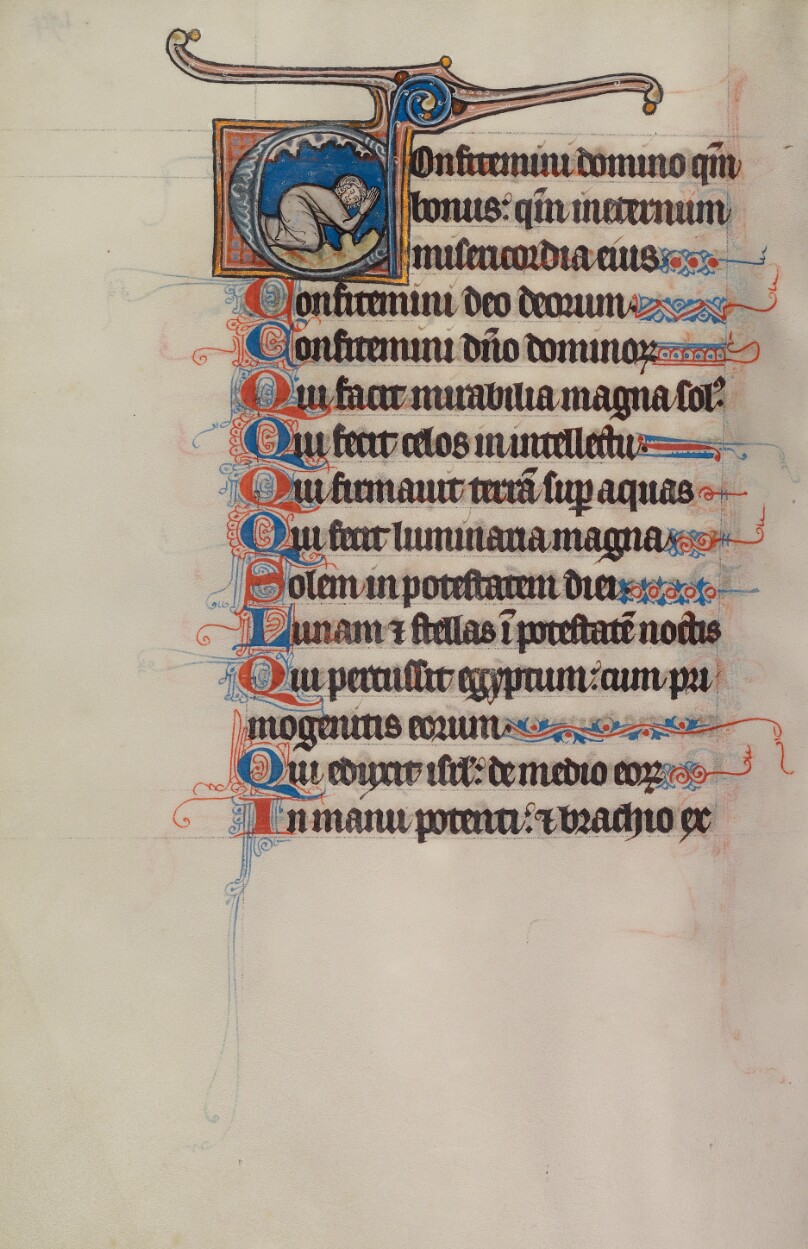 Confitemini domino qm̄
bonus: qm̄ ineternum
misericordia eius
Confitemini deo deorum.
Confitemini dño dominoꝝ
Qui facit mirabilia magna sol⁹:
Qui fecit celos in intellectu.
Qui firmauit terrā suꝑ aquas
Qui fecit luminaria magna
Solem in potestatem diei
Lunam ⁊ stellas ī potestatē noctis
Qui percussit egyptum: cum pri
mogenitis eorum.
Qui eduxit isrl': de medio eoꝝ
In manu potenti: ⁊ brachio ex